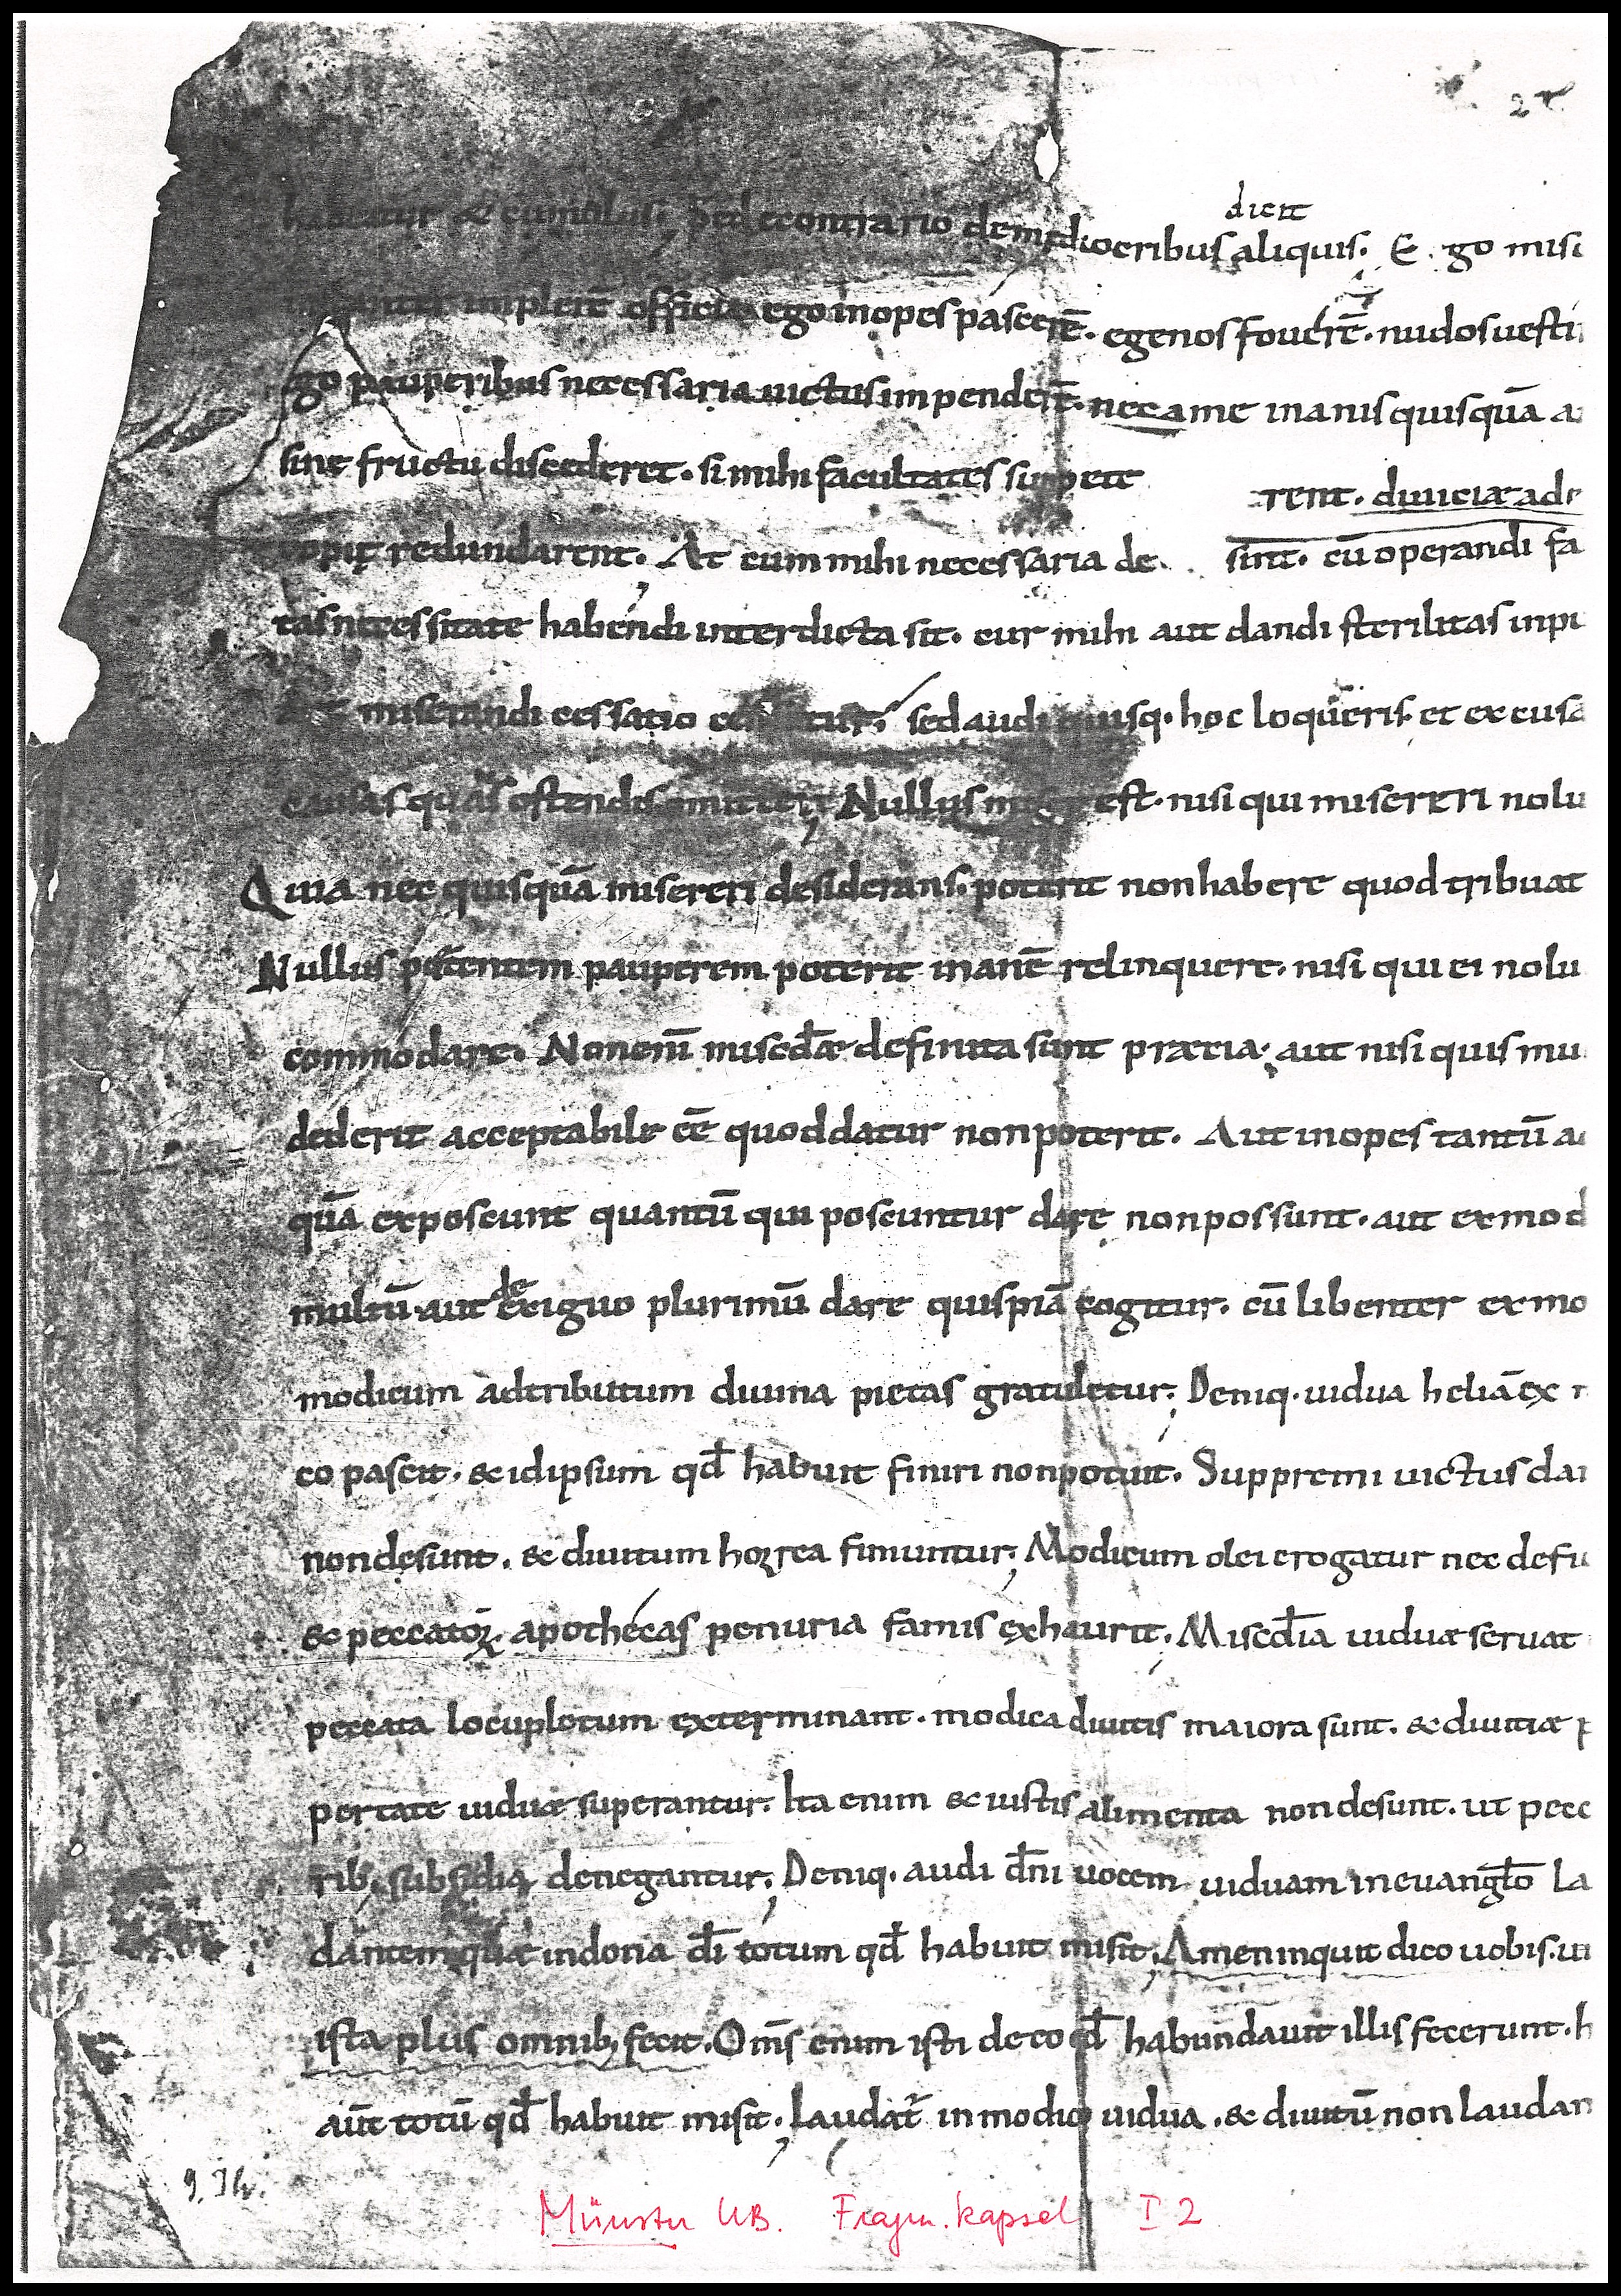 2
dicit
habeatur & cumulus; Sed econtrario demediocribus aliquis. Ego mis
impleuit officia ego inopes pascerē. egenos fouerē. nudos uesti
go pauperibus necessaria uictus impenderē. nec a me inanis quisquā a
sine fructu discederet. si mihi facultates suppete
rent. diuiciæ ad
redundarent. At cum mihi necessaria de sint. cū operandi fa
tas necessitate habendi interdicta sit. cur mihi aut dandi sterilitas inpu
miserandi cessatio sed audi quisq. hoc loqueris. et excusa
causas quas ostendis Nullus est. nisi qui misereri nolu
Quia nec quisquā misereri desiderans. poterit non habere quod tribuat
Nullus petentem pauperem poterit inanē relinquere. nisi qui ei nolu
commodare. Non enī misecd̄æ definita sunt prætia. aut nisi quis mu
dederit acceptabile eē quod datur non poterit. Aut inopes tantū a
quā exposcunt quantū qui poscuntur dare non possunt. aut ex mod
multū. aut de exiguo plurimū dare quispiā cogitur. cū libenter ex mo
modicum adtributum diuina pietas gratuletur; Deniq. uidua heliā ex
co pascit. & id ipsum qd̄ habuit finiri non potuit. Suppremi uictus da
non desunt. & diuitum horrea finiuntur; Modicum olei erogatur nec defi
& peccatoꝝ. apothecas penuria famis exhaurit. Miscd̄ia uiduæ seruat
peccata locupletum exterminant. modica diuitis maiora sunt. & diuitiæ p
pertate uiduæ superantur. Ita enim & iustis alimenta non desunt. ut pecc
rib; subsidia denegantur; Deniq. audi dn̄i uocem uiduam in euanglo la
dantem quæ in dona dī totum qd̄ habuit misit. Amen inquit dico uobis. ui
ista plus omnib; fecit. Om̄s enim isti de eo qd̄ habundauit illis fecerunt. h
aūt totū qd̄ habuit misit. Laudat̄ in modio uidua. & diuitū non laudan
Münster UB. Fragm. kapsel I 2